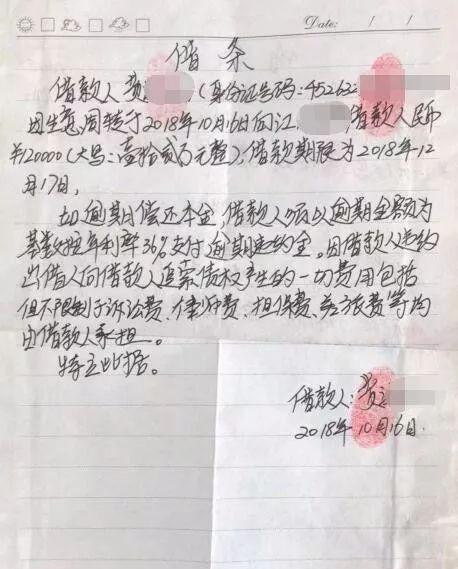 Date: / /
借条
借款人黄 (身份证号码:452632
因生意周转于2018年10月16日向江 借款人民币
¥120000(大写:壹拾贰万元整),借款期限为2018年12
月17日,
如逾期偿还本金,借款人应以逾期金额为
基数按年利率36%支付逾期违约金。因借款人违约
出借人向借款人追索债权产生的一切费用包括
但不限制于诉讼费、律师费、担保费、差旅费等均
由借款人承担。
特立此据。
借款人:黄
2018年10月16日.